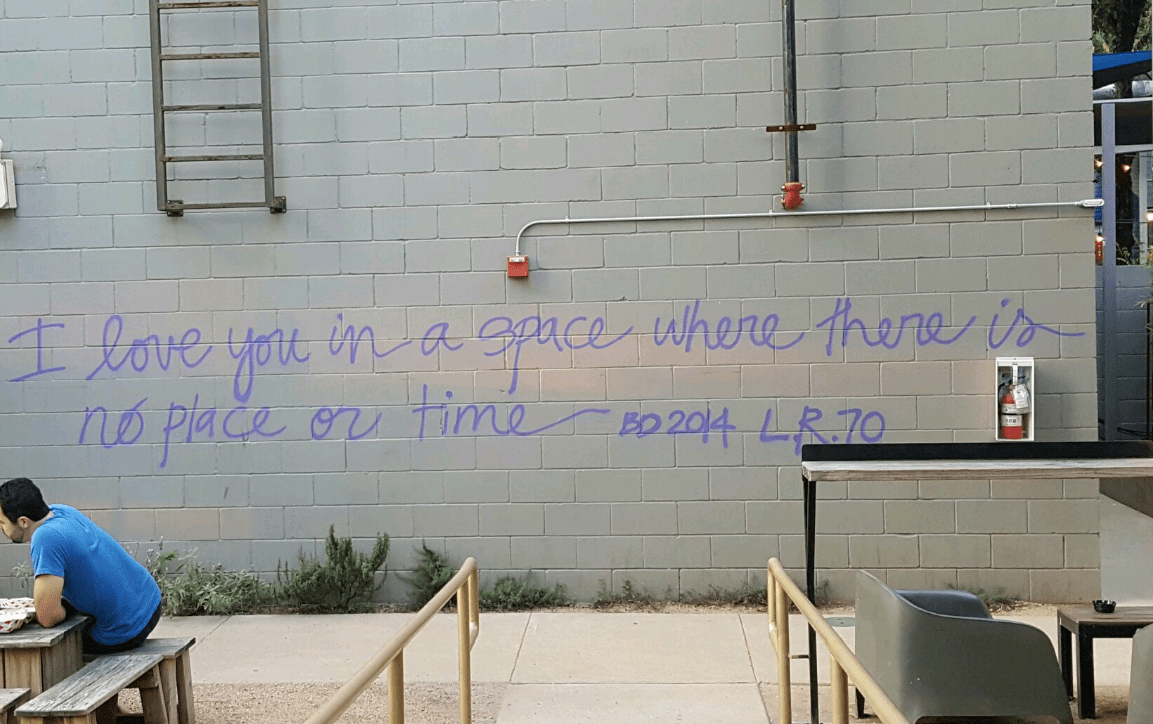 I love you in a space where there is
no place or time BD 2014 L.R.70